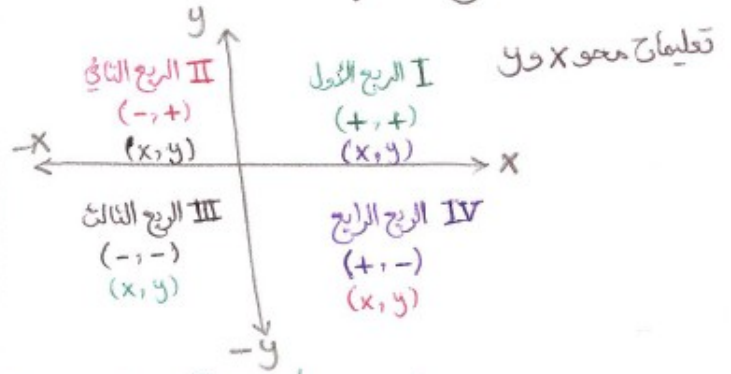 y
تعليمات محور x و y
II الربع الثاني
(-,+)
(x,y)
I الربع الأول
(+,+)
(x,y)
-x
x
III الربع الثالث
(-,-)
(x,y)
IV الربع الرابع
(+,-)
(x,y)
-y